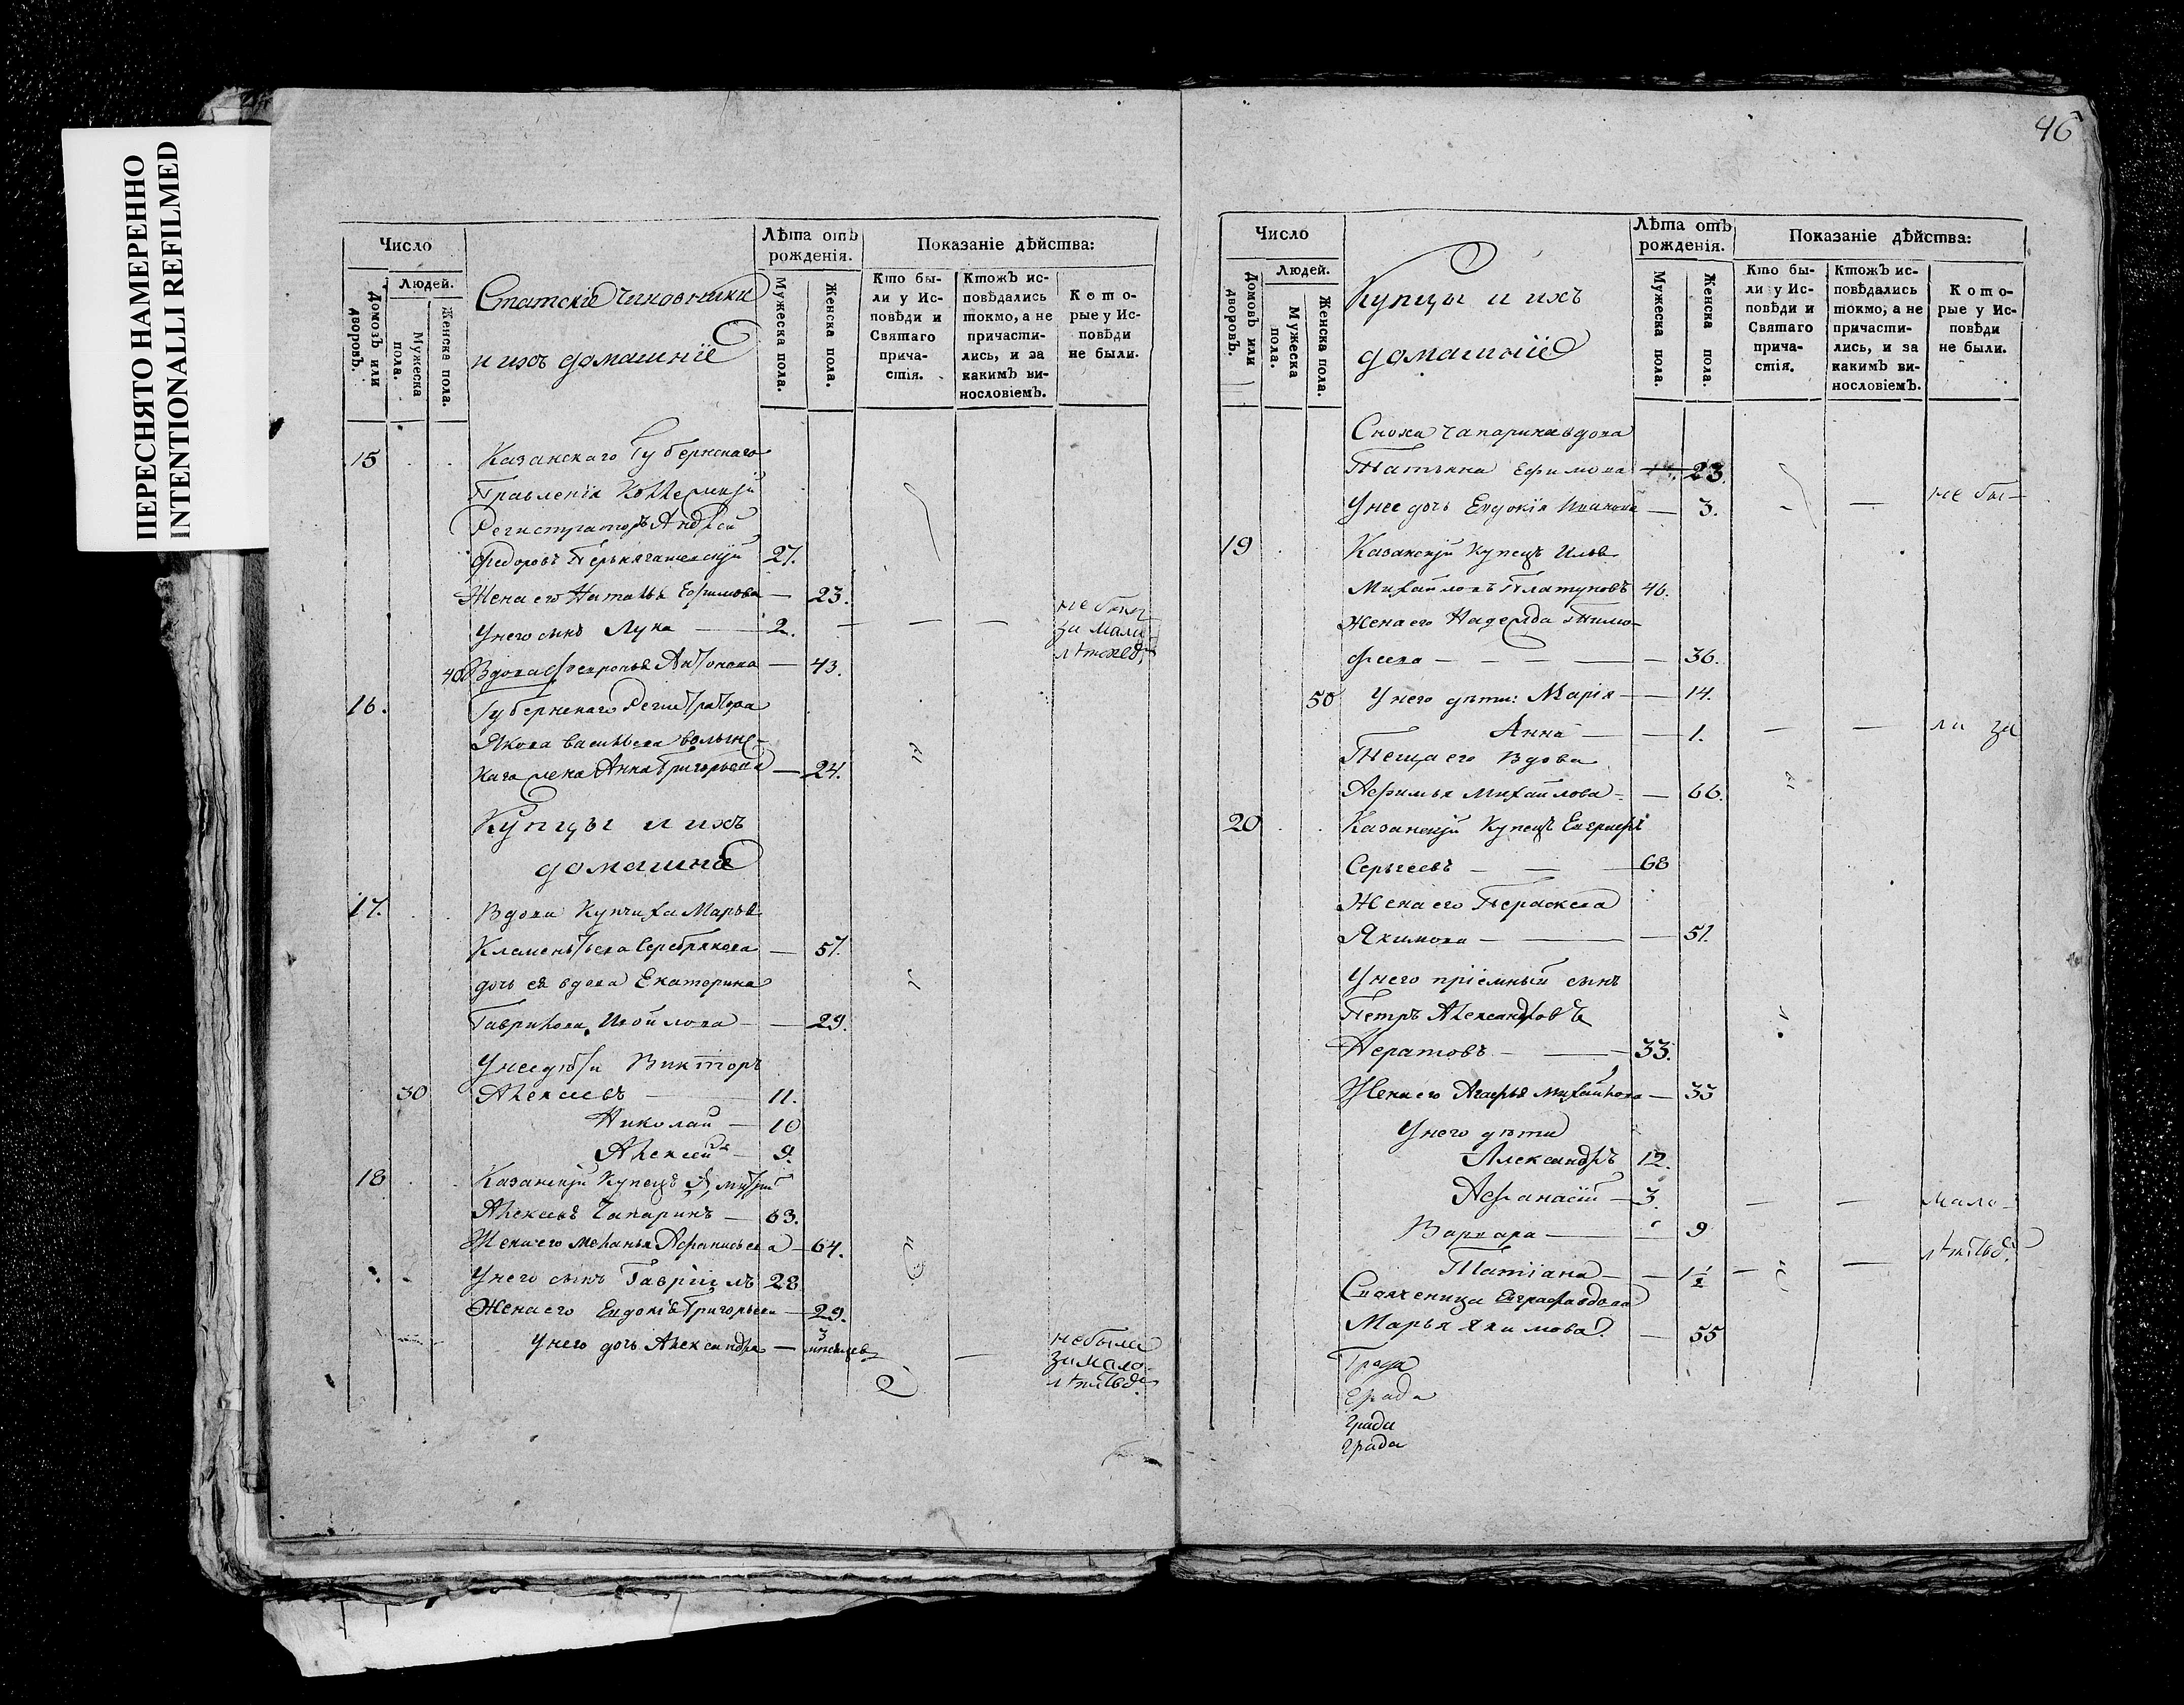 ПЕРЕСНЯТО НАМЕРЕННО
INTENTIONALLI REFILMED
Число
Людей.
Домовъ или дворовъ.
Мужеска пола.
Женска пола.
Статскіе чиновники
и ихъ домашніе
Лѣта отъ рожденія.
Мужеска пола.
Женска пола.
Показаніе дѣйства:
Кто бы-
ли у Ис-
повѣди и
Святаго
прича-
стія.
Ктожъ ис-
повѣдались
токмо, а не
причасти-
лись, и за
какимъ ви-
нословіемъ.
Кото-
рые у Ис-
повѣди
не были.
15 Казанскаго Губернскаго
Правленія Коллежскій
Регистраторъ Андрей
Федоровъ 27.
Жена его Наталья Ефимова — 23.
У него сынъ Лука — 2. — — не были
за мало-
лѣтсвд:
40 Вдова Февронья Антонова — 43.
16. Губернскаго Регистратора
Якова Васильева
жена Анна Григорьева — 24.
Купцы и ихъ
домашніе
17. Вдова Купчиха Марья
Клементьева Серебрякова — 57.
дочь ея вдова Екатерина
Гаврилова Измойлова — 29.
У нее дѣти Викторъ
30 Алексеевъ — 11.
Николай — 10
Алексей — 9.
18 Казанскій Купецъ Дмитрий
Алексеевъ Чапаринъ — 63.
Жена его Меланья Афанасьева — 64.
У него сынъ Гавріилъ 28
Жена его Евдокія Григорьева — 29.
У него дочь Александра — 3 мѣсяцев — не были
за мало-
лѣтствд:
46
Число
Людей.
Домовъ или дворовъ.
Мужеска пола.
Женска пола.
Купцы и ихъ
домашніе
Лѣта отъ рожденія.
Мужеска пола.
Женска пола.
Показаніе дѣйства:
Кто бы-
ли у Ис-
повѣди и
Святаго
прича-
стія.
Ктожъ ис-
повѣдались
токмо, а не
причасти-
лись, и за
какимъ ви-
нословіемъ.
Кото-
рые у Ис-
повѣди
не были.
Сноха Чапарина вдова
Татьяна Ефимова — 23.
У нее дочь Евдокія Иванова — 3. - — не бы-
19 Казанскій Купецъ Илья
Михайловъ Платуновъ 46.
Жена его Надежда Тимо-
феева — — — — 36.
50 У него дѣти: Марія — — 14.
Анна — — 1. — — ли за
Теща его Вдова
Афимья Михайлова — — 66.
20 Казанскій Купецъ Евграфъ
Сергеевъ — — 68
Жена его Параскева
Якимова — — — 51.
У него пріемный сынъ
Петръ Александровъ
Нератовъ — — 33.
Жена его Агафья Михайлова — 33
У него дѣти
Александръ 12.
Афанасій — 3. — — мало-
Варвара — 9
Татіана — — 1½ — — лѣтствд:
Своячиница Евграфа вдова
Марья Якимова. — 55
Града
Града
Града
Града